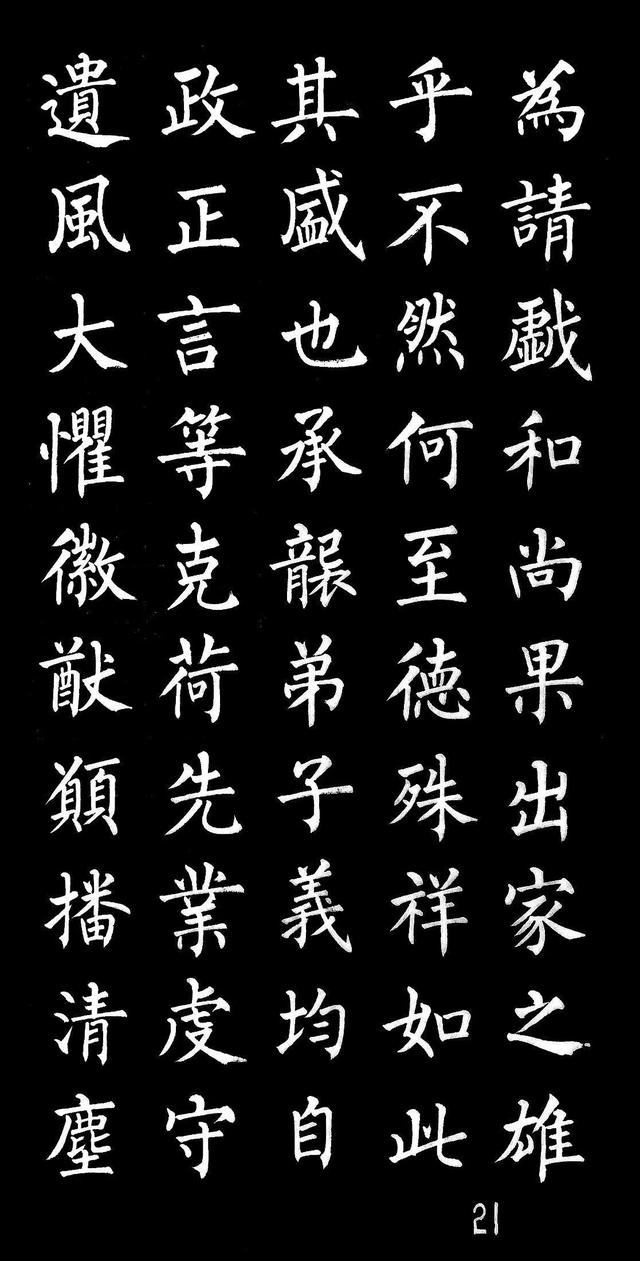 為請戯和尚果出家之雄
乎不然何至徳殊祥如此
其盛也承襲弟子義均自
政正言等克荷先業虔守
遺風大懼徽猷顚播清塵
21